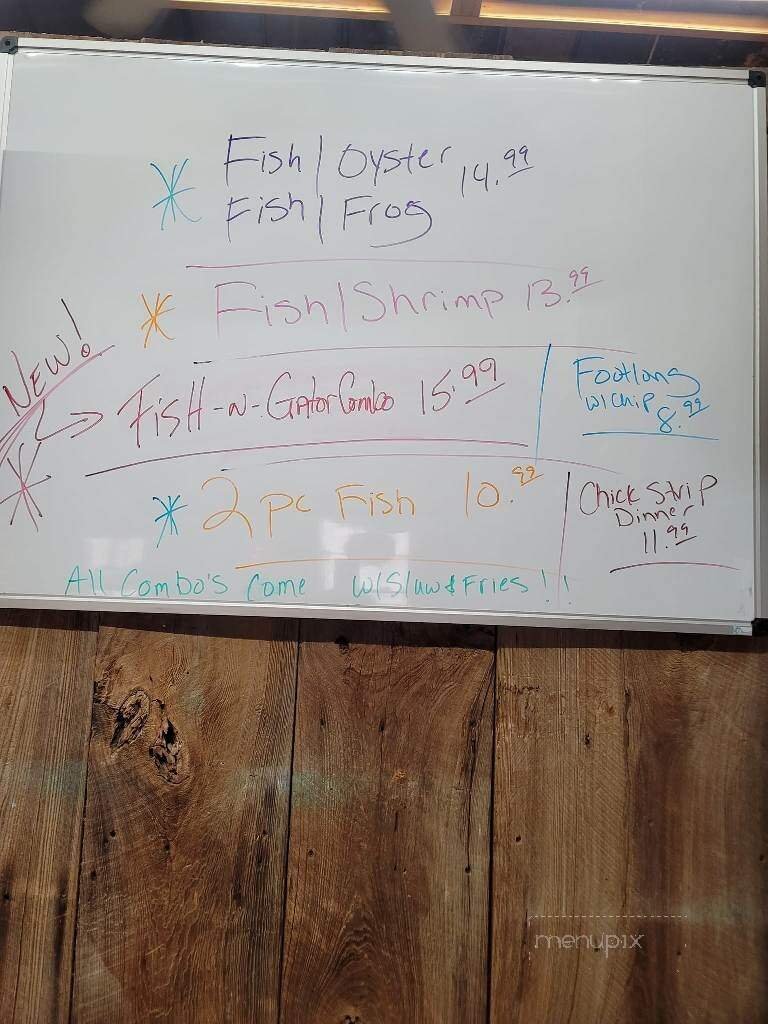 Fish / Oyster 14.99
Fish / Frog
Fish / Shrimp 13.99
NEW!
FisH-N-Gator Combo 15.99
Footlong
w/ chip
8.99
2 pc Fish 10.99
Chick Strip
Dinner
11.99
All Combo's Come w/ Slaw & Fries !!
menupix